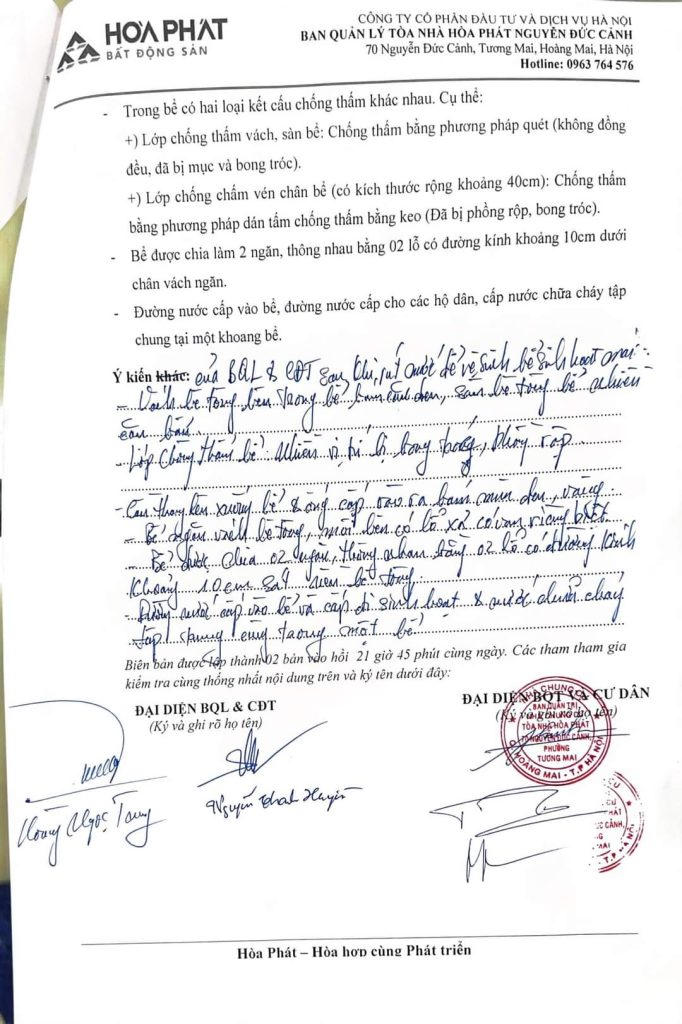 HÒA PHÁT
BẤT ĐỘNG SẢN
CÔNG TY CỔ PHẦN ĐẦU TƯ VÀ DỊCH VỤ HÀ NỘI
BAN QUẢN LÝ TÒA NHÀ HÒA PHÁT NGUYỄN ĐỨC CẢNH
70 Nguyễn Đức Cảnh, Tương Mai, Hoàng Mai, Hà Nội
Hotline: 0963 764 576
- Trong bể có hai loại kết cấu chống thấm khác nhau. Cụ thể:
+) Lớp chống thấm vách, sàn bể: Chống thấm bằng phương pháp quét (không đồng
đều, đã bị mục và bong tróc).
+) Lớp chống chấm vén chân bể (có kích thước rộng khoảng 40cm): Chống thấm
bằng phương pháp dán tấm chống thấm bằng keo (Đã bị phồng rộp, bong tróc).
- Bể được chia làm 2 ngăn, thông nhau bằng 02 lỗ có đường kính khoảng 10cm dưới
chân vách ngăn.
- Đường nước cấp vào bể, đường nước cấp cho các hộ dân, cấp nước chữa cháy tập
chung tại một khoang bể.
Ý kiến khác: của BQL & CĐT sau khi rút nước để vệ sinh bể sinh hoạt
- Vách bê tông bên trong bể bám cặn đen, sàn bê tông bể nhiều
cặn bẩn
- Lớp chống thấm bể nhiều vị trí bị bong tróc, phồng rộp
- Cầu thang lên xuống bể & ống cấp vào ra bám màu đen, vàng
- Bể ngăn vách bê tông, mỗi bên có lỗ xả có van riêng biệt
- Bể được chia 02 ngăn, thông nhau bằng 02 lỗ có đường kính
khoảng 10cm sát bê tông
- Đường nước cấp vào bể và cấp đi sinh hoạt & nước chữa cháy
tập chung cùng trong một bể
Biên bản được lập thành 02 bản vào hồi 21 giờ 45 phút cùng ngày. Các tham tham gia
kiểm tra cùng thống nhất nội dung trên và ký tên dưới đây:
ĐẠI DIỆN BQL & CĐT
(Ký và ghi rõ họ tên)
ĐẠI DIỆN BQT VÀ CƯ DÂN
(Ký và ghi rõ họ tên)
BAN QUẢN TRỊ
NHÀ CHUNG CƯ
TÒA NHÀ HÒA PHÁT
70 NGUYỄN ĐỨC CẢNH,
PHƯỜNG
TƯƠNG MAI
Q. HOÀNG MAI - T.P HÀ NỘI
Hoàng Ngọc Tùng
Nguyễn Thanh Huyền
Hòa Phát – Hòa hợp cùng Phát triển